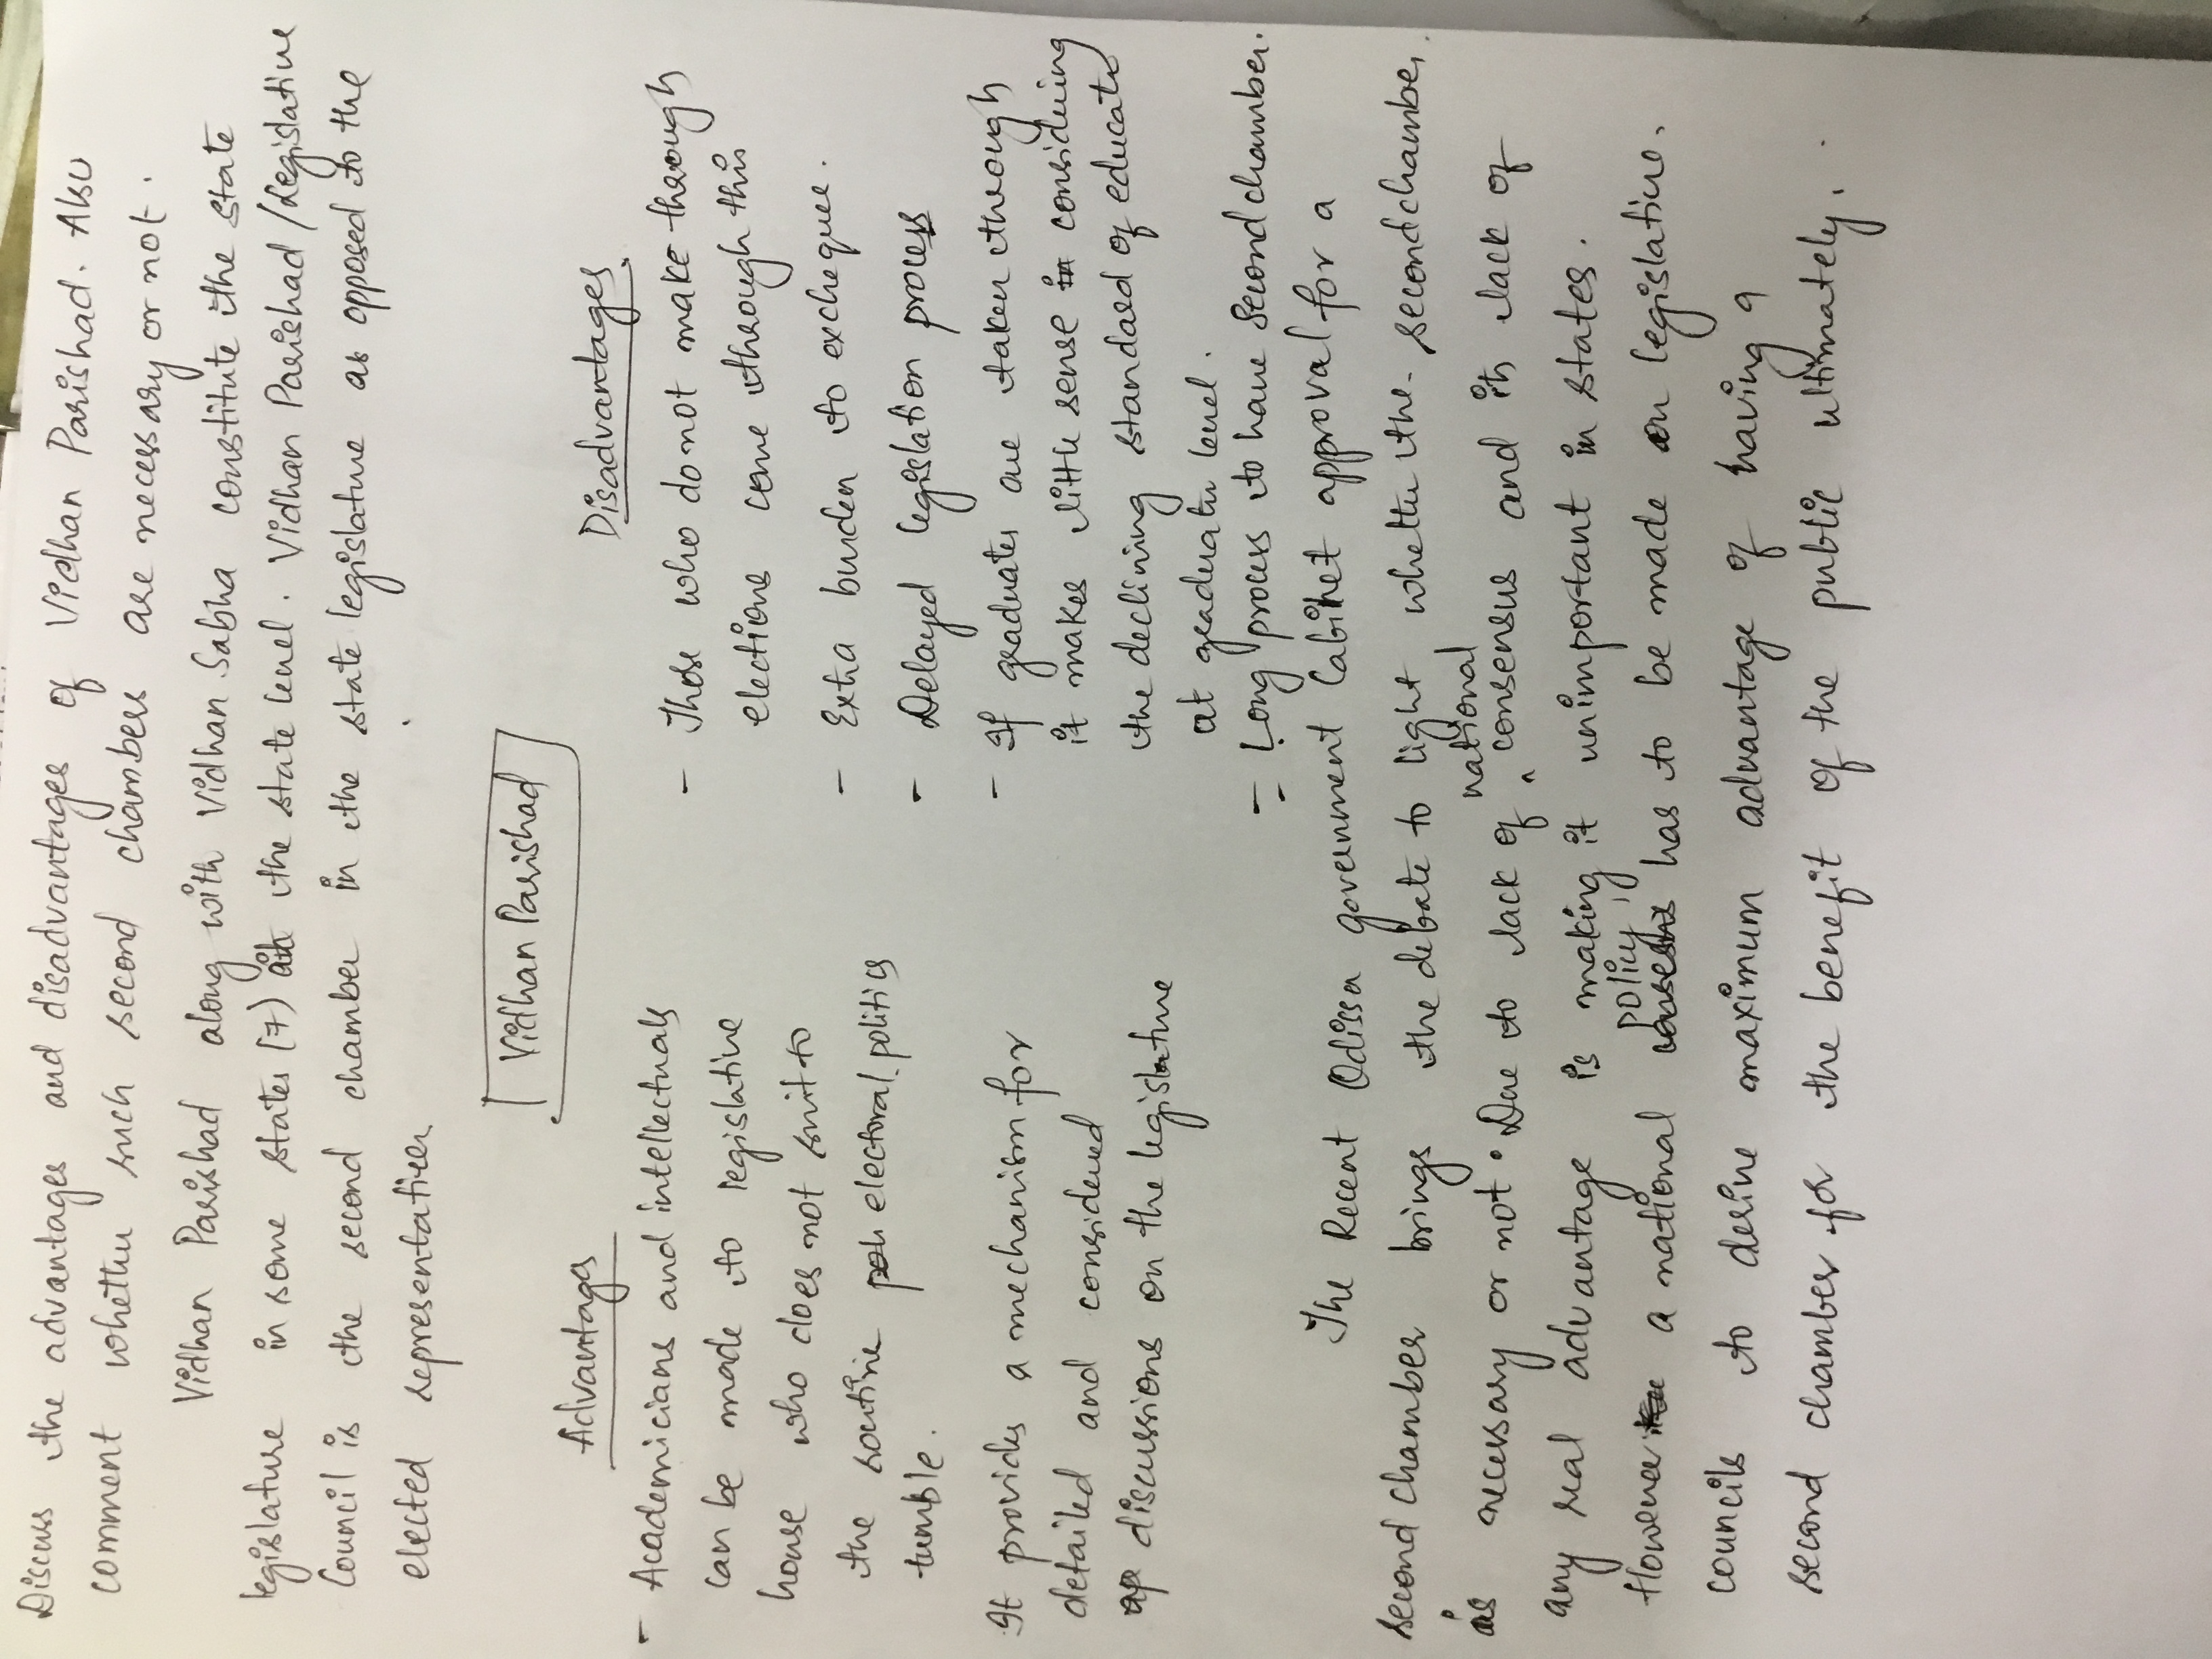 Discuss the advantages and disadvantages of Vidhan Parishad. Also
comment whether such second chambers are necessary or not.
Vidhan Parishad along with Vidhan Sabha constitute the state
legislature in some states (7) at the state level. Vidhan Parishad/Legislative
Council is the second chamber in the state legislature as opposed to the
elected representatives
Vidhan Parishad
Advantages
- Academicians and intellectuals
can be made to legislative
house who does not suit to
the routine electoral politics
tumble.
It provides a mechanism for
detailed and considered
discussions on the legislature
Disadvantages
- Those who do not make through
elections come through this
- Extra burden to exchequer.
- Delayed legislation process
- If graduates are taken through
it makes little sense considering
the declining standard of educatn
at graduatn level.
- Long process to have second chamber.
The Recent Odissa government Cabinet approval for a
second chamber brings the debate to light whether the second chamber,
is necessary or not. Due to lack of national consensus and its lack of
any real advantage is making it unimportant in states.
However a national policy has to be made on legislative
councils to derive maximum advantage of having a
second chamber for the benefit of the public ultimately.